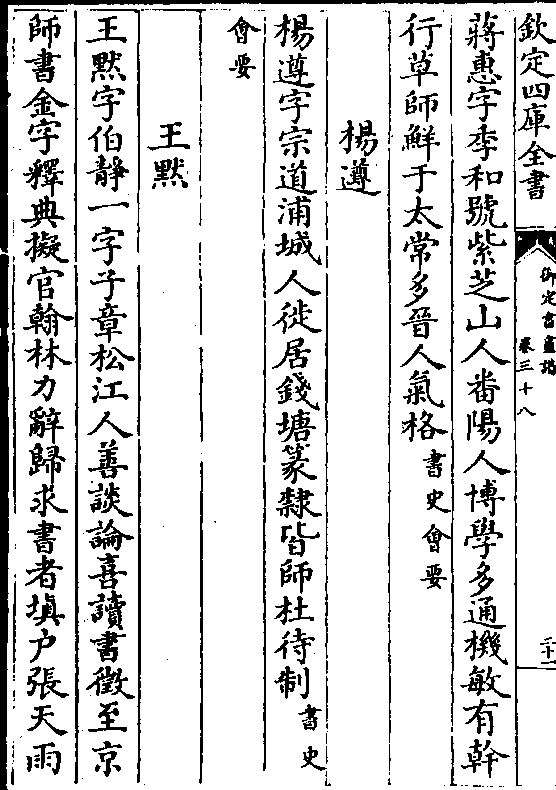 欽定四庫全書
御定書畫譜
卷三十八
二十一
蔣惠字季和號紫芝山人番陽人博學多通機敏有幹
行草師鮮于太常多晉人氣格書史會要
楊遵
楊遵字宗道浦城人徙居錢塘篆隸皆師杜待制書史
會要
王默
王默字伯靜一字子章松江人善談論喜讀書徵至京
師書金字釋典擬官翰林力辭歸求書者填户張天雨